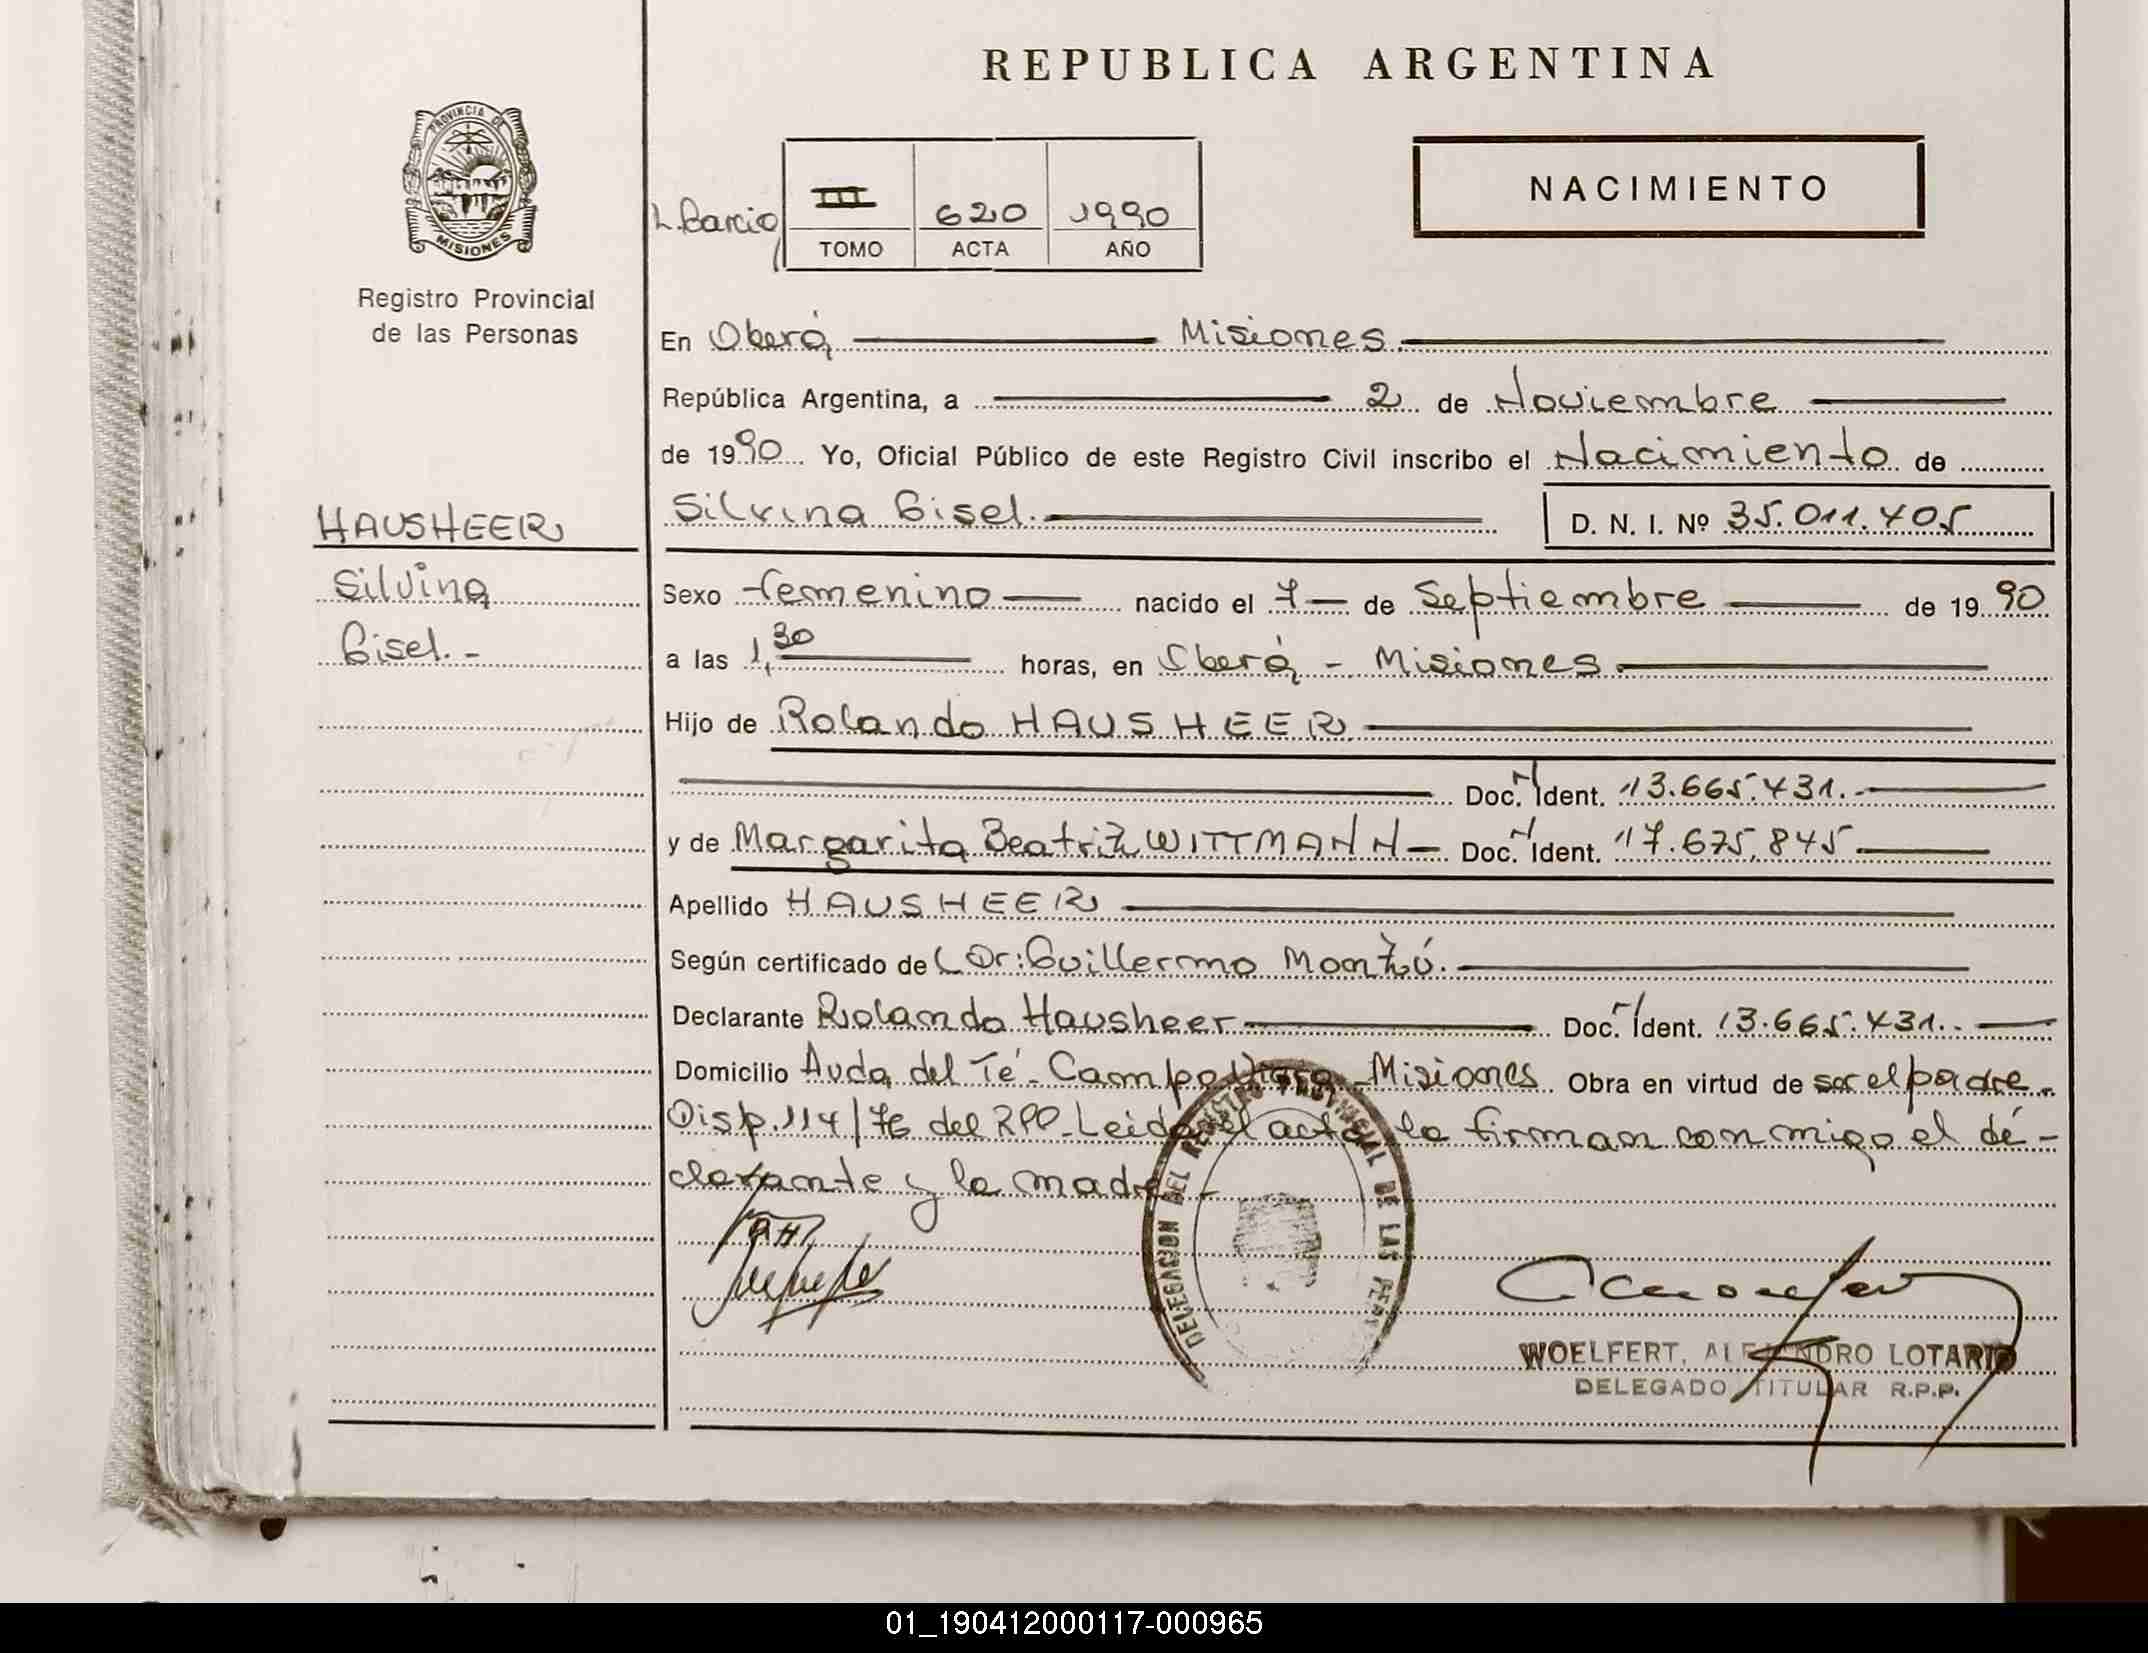 REPUBLICA ARGENTINA
PROVINCIA DE
MISIONES
Registro Provincial
de las Personas
NACIMIENTO
III 620 1990
TOMO ACTA AÑO
En Oberá, Misiones.
República Argentina, a 2 de Noviembre
de 1990 Yo, Oficial Público de este Registro Civil inscribo el Nacimiento de
HAUSHEER
Silvina
Gisel.-
Silvina Gisel. D. N. I. Nº 35.011.405
Sexo femenino nacido el 7 de Septiembre de 1990
a las 1,30 horas, en Oberá - Misiones
Hijo de Rolando HAUSHEER
Doc. Ident. 13.665.431.-
y de Margarita Beatriz WITTMANN - Doc. Ident. 17.675.845
Apellido HAUSHEER
Según certificado de Dr: Guillermo Monzú.
Declarante Rolando Hausheer Doc. Ident. 13.665.431.-
Domicilio Avda. del Té - Campo Viera - Misiones Obra en virtud de ser el padre.
Disp. 114/76 del RPP - Leida el acta la firman conmigo el de-
clarante y la madre.-
DELEGACION DEL REGISTRO PROVINCIAL DE LAS PER
WOELFERT, ALEJANDRO LOTARIO
DELEGADO TITULAR R.P.P.
01_190412000117-000965